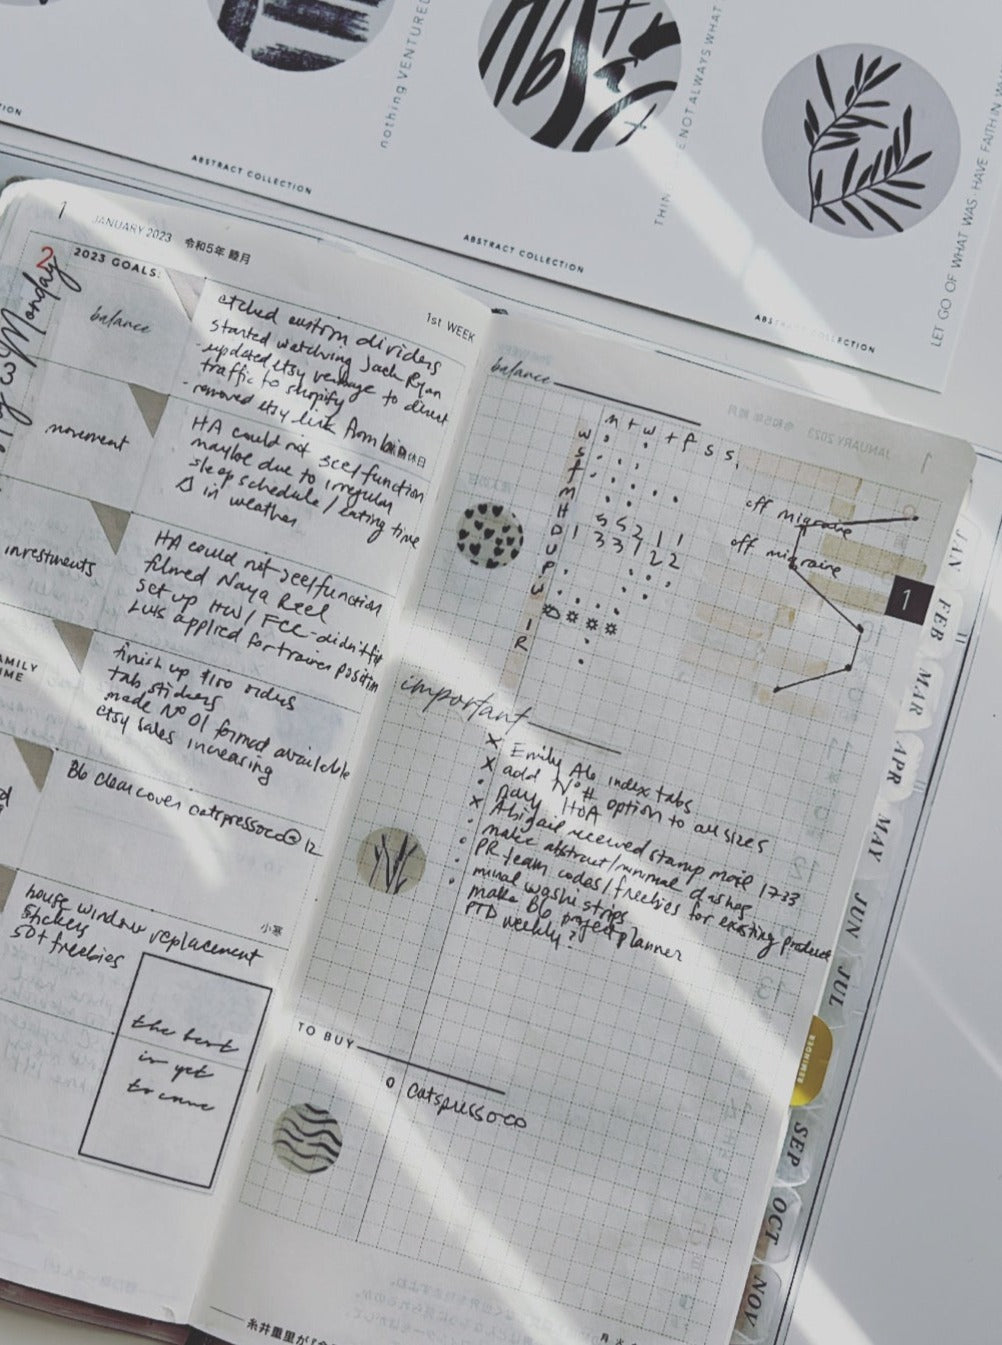 nothing VENTURED
NOT ALWAYS WHAT
LET GO OF WHAT WAS · HAVE FAITH IN
ABSTRACT COLLECTION
ABSTRACT COLLECTION
ABSTRACT COLLECTION
1
JANUARY 2023 令和5年 睦月
1st WEEK
2
Monday
3
2023 GOALS:
balance
etched custom dividers
started watching Jack Ryan
- updated etsy verbage to direct
traffic to shopify
- removed etsy link from bio
movement
HA could not see/function
maybe due to irregular
sleep schedule / eating time
Δ in weather
investments
HA could not see/function
filmed Naya Reel
set up HW / FCC - didn't fit
Luis applied for trainer position
FAMILY
TIME
finish up $100 orders
tab stickers
made Nº 01 format available
etsy sales increasing
B6 clear cover catspressoco @ 12
小寒
house window replacement
stickers
50+ freebies
the best
is yet
to come
balance
m t w t f s s
W
S
F
M
H 5 5 2 1 1
D 1 3 3 1 2 2
U
P
W
I
R
off migraine
off migraine
important
x Emily A6 index tabs
x add Nº # option to all sizes
• pay HOA
x Abigail received stamp mail 1723
• make abstract/minimal dashes
• PR team codes / freebies for existing product
• minal washi strips
• make B6 project planner
PTD weekly?
TO BUY
o catspressoco
1
JAN
FEB
MAR
APR
MAY
JUN
JUL
REMINDER
SEP
OCT
NOV